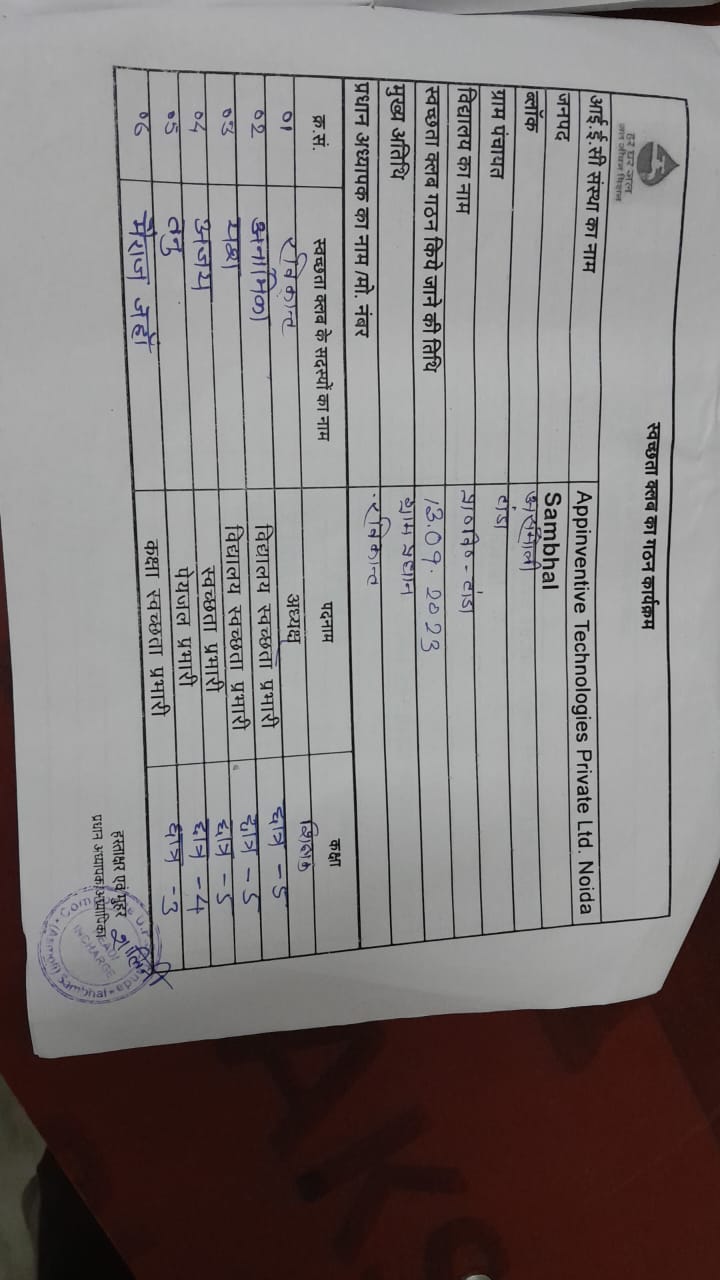 हर घर जल
जल जीवन मिशन
स्वच्छता क्लब का गठन कार्यक्रम
आई.ई.सी संस्था का नाम Appinventive Technologies Private Ltd. Noida
जनपद Sambhal
ब्लॉक असमोली
ग्राम पंचायत टांडा
विद्यालय का नाम प्रा० वि० - टांडा
स्वच्छता क्लब गठन किये जाने की तिथि 13.09.2023
मुख्य अतिथि ग्राम प्रधान
प्रधान अध्यापक का नाम/मो. नंबर रविकान्त
क्र.सं. स्वच्छता क्लब के सदस्यों का नाम पदनाम कक्षा
01 रविकान्त अध्यक्ष
02 अनामिका विद्यालय स्वच्छता प्रभारी छात्र - 5
03 विद्यालय स्वच्छता प्रभारी छात्र - 5
04 अजय स्वच्छता प्रभारी छात्र - 5
05 तनु पेयजल प्रभारी छात्र - 4
06 जहाँ कक्षा स्वच्छता प्रभारी छात्र - 3
हस्ताक्षर एवं मुहर
प्रधान अध्यापक/अध्यापिका
INCHARGE
(Asmoli) Sambhal